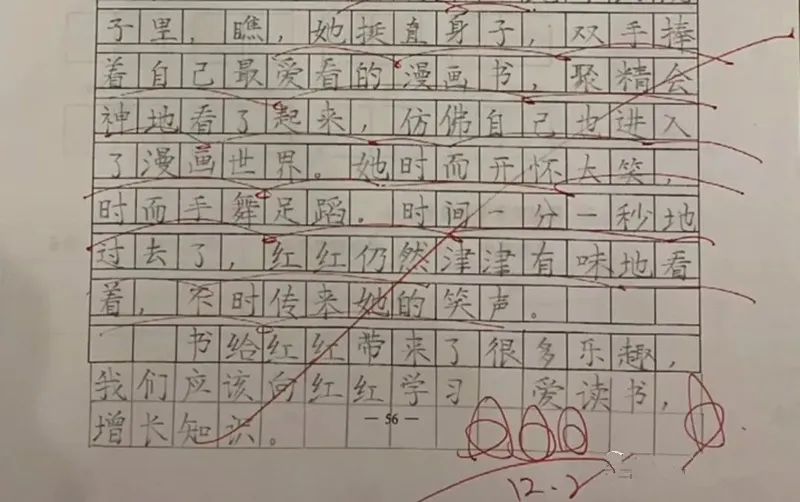 子里，瞧，她挺直身子，双手捧
着自己最爱看的漫画书，聚精会
神地看了起来，仿佛自己也进入
了漫画世界。她时而开怀大笑，
时而手舞足蹈。时间一分一秒地
过去了，红红仍然津津有味地看
着，不时传来她的笑声。
书给红红带来了很多乐趣，
我们应该向红红学习 爱读书，
增长知识。
— 56 —
12.2